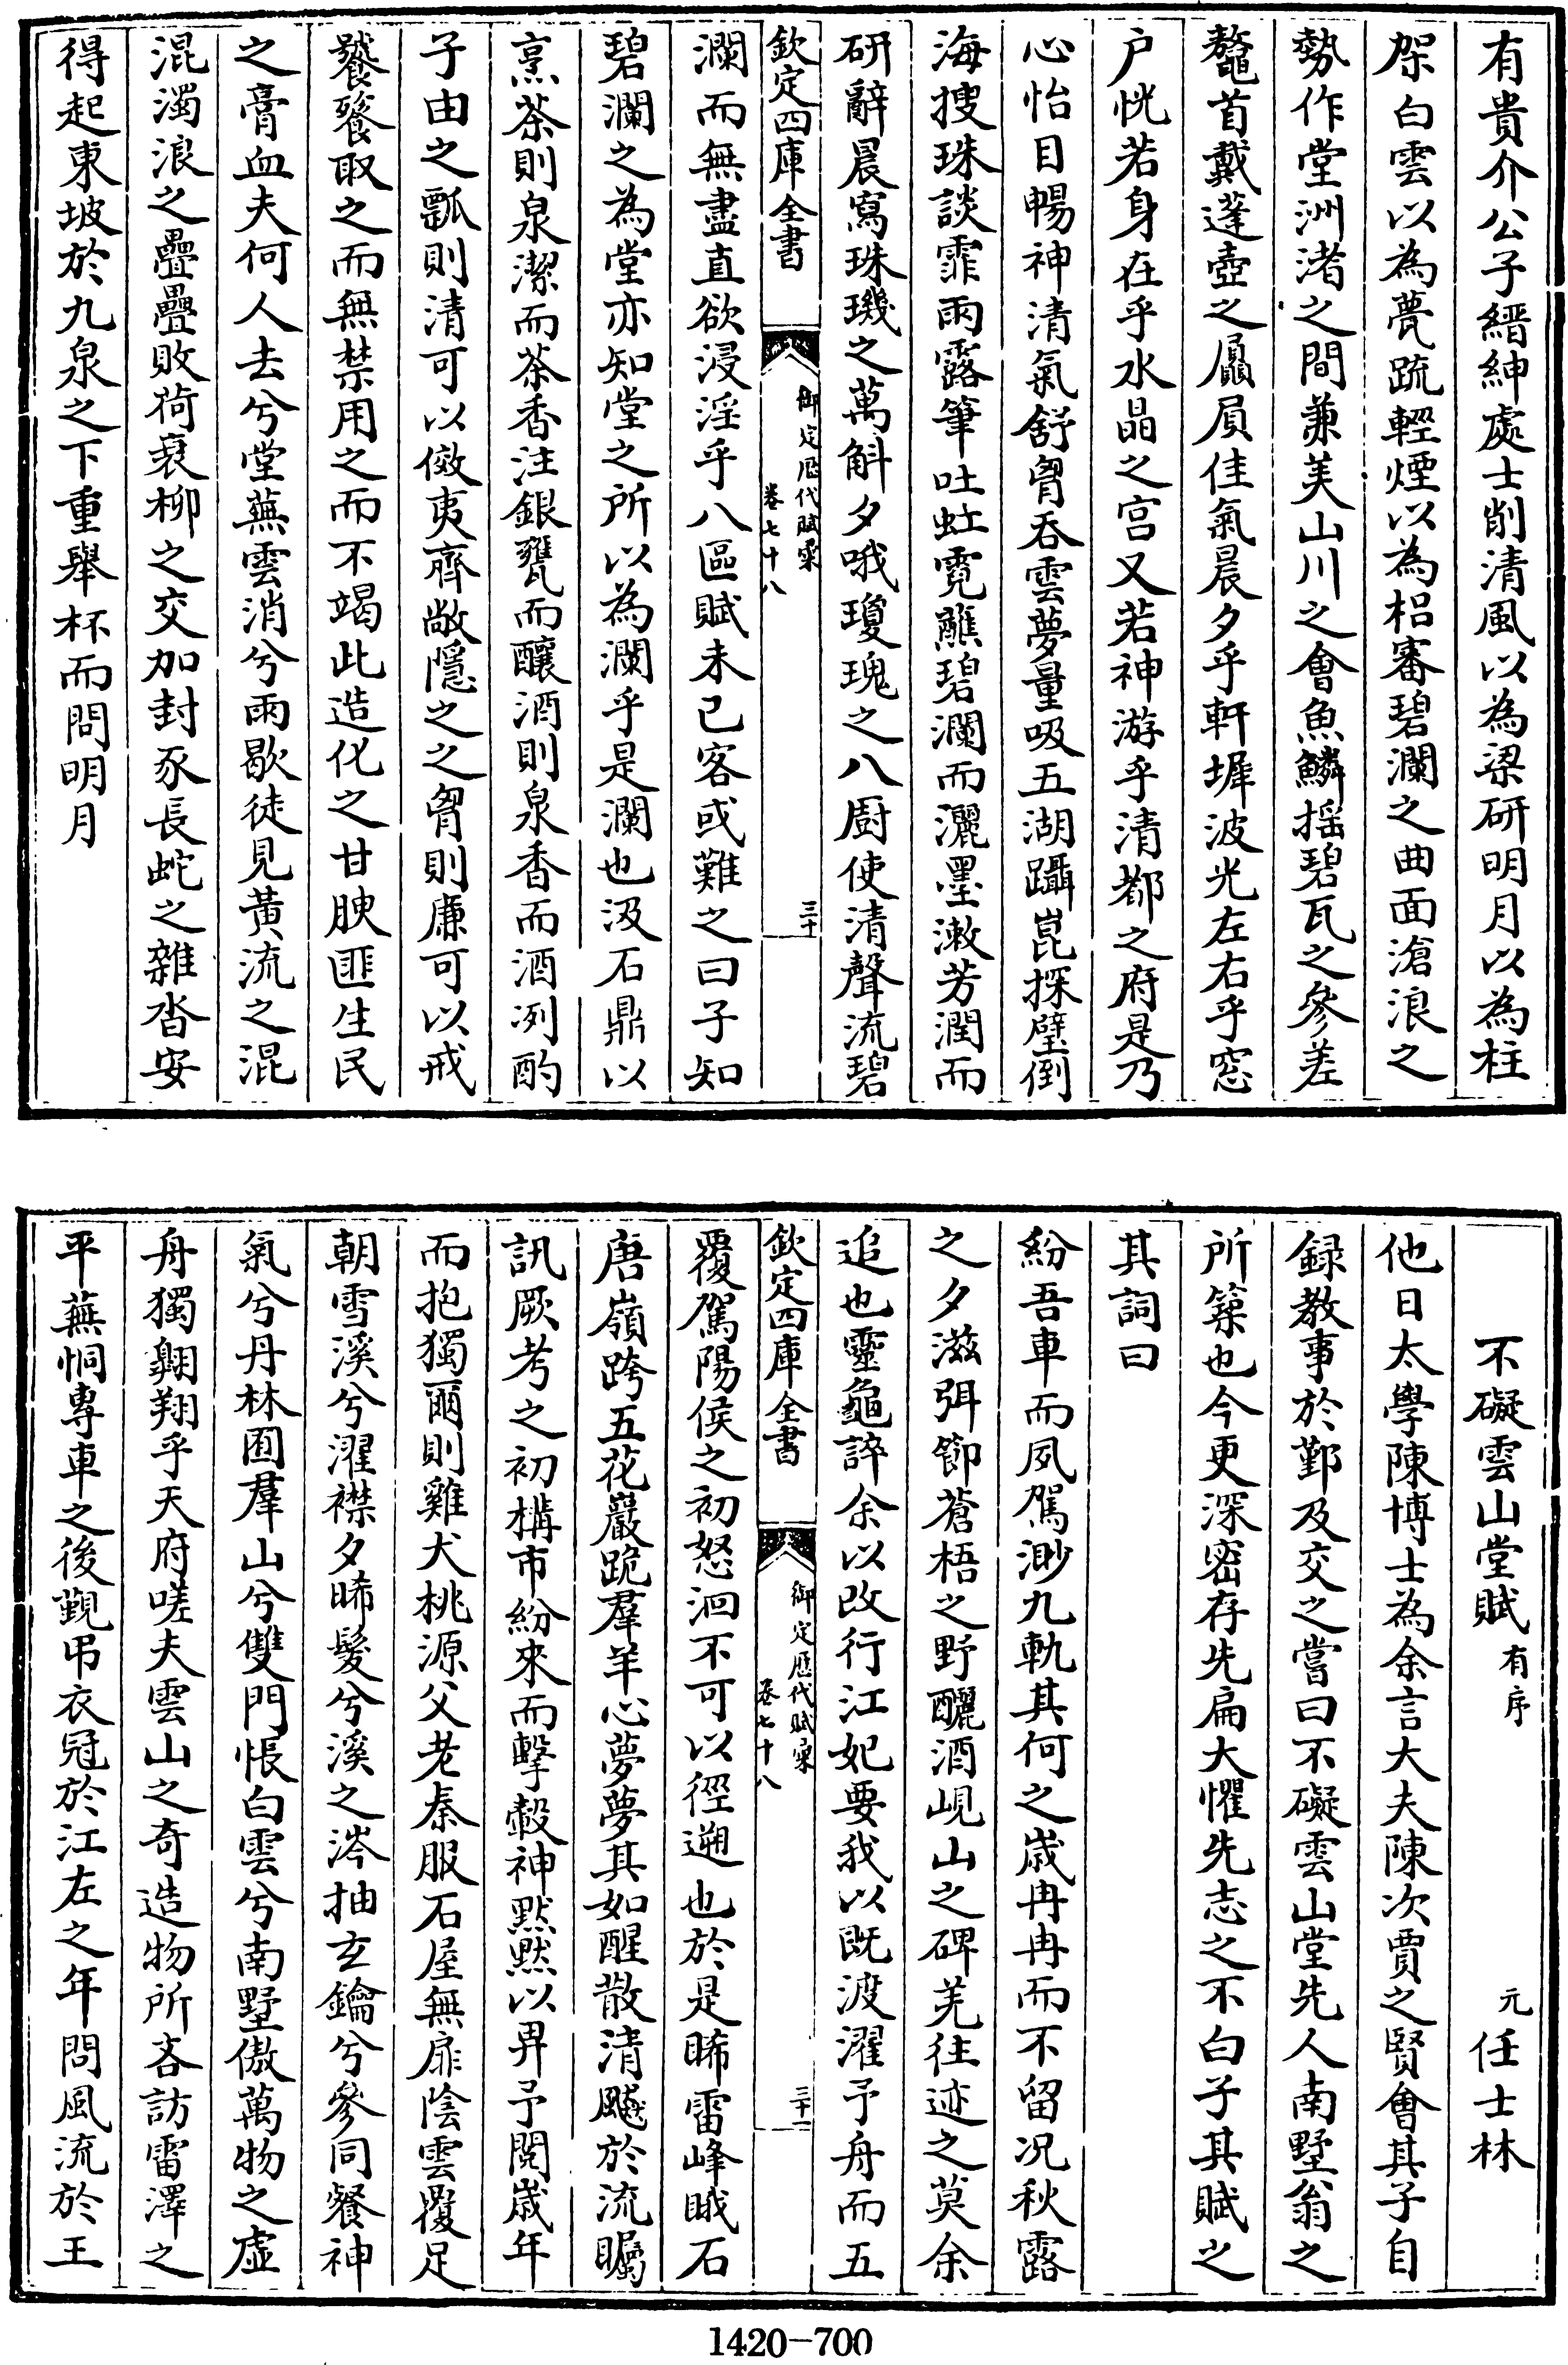 有貴介公子縉紳處士削清風以為梁研明月以為柱
架白雲以為甍疏輕煙以為梠審碧瀾之曲面滄浪之
勢作堂洲渚之間兼美山川之會魚鱗揺碧瓦之參差
鼇首戴蓬壺之屭屓佳氣晨夕乎軒墀波光左右乎窓
户恍若身在乎水晶之宫又若神游乎清都之府是乃
心怡目暢神清氣舒胷吞雲夢量吸五湖躡崑探璧倒
海搜珠談霏雨露筆吐虹霓蘸碧瀾而灑墨漱芳潤而
研辭晨寫珠璣之萬斛夕哦瓊瑰之八厨使清聲流碧
欽定四庫全書
御定歴代賦彚
卷七十八
三十
瀾而無盡直欲浸淫乎八區賦未已客或難之曰子知
碧瀾之為堂亦知堂之所以為瀾乎是瀾也汲石鼎以
烹茶則泉潔而茶香注銀甕而釀酒則泉香而酒洌酌
子由之瓢則清可以俲夷齊敞隱之之胷則亷可以戒
饕餮取之而無禁用之而不竭此造化之甘腴匪生民
之膏血夫何人去兮堂蕪雲消兮雨歇徒見黄流之混
混濁浪之疊疊敗荷衰柳之交加封豕長蛇之雜沓安
得起東坡於九泉之下重舉杯而問明月
不礙雲山堂賦有序
元任士林
他日太學陳博士為余言大夫陳次賈之賢會其子自
録教事於鄞及交之嘗曰不礙雲山堂先人南墅翁之
所築也今更深密存先扁大懼先志之不白子其賦之
其詞曰
紛吾車而夙駕渺九軌其何之歳冉冉而不留况秋露
之夕滋弭節蒼梧之野釃酒峴山之碑羌往迹之莫余
追也靈龜誶余以改行江妃要我以既渡濯予舟而五
欽定四庫全書
御定歴代賦彚
卷七十八
三十一
覆駕陽侯之初怒洄不可以徑遡也於是睎雷峰睋石
唐嶺跨五花巖跪羣羊心夢夢其如醒散清飈於流矚
訊厥考之初構市紛來而擊轂神黙黙以畀予閲歳年
而抱獨爾則雞犬桃源父老秦服石屋無扉陰雲覆足
朝雪溪兮濯襟夕晞髮兮溪之涔抽玄鑰兮參同餐神
氣兮丹林囿羣山兮雙門悵白雲兮南墅傲萬物之虚
舟獨翺翔乎天府嗟夫雲山之奇造物所吝訪雷澤之
平蕪恫專車之後觀弔衣冠於江左之年問風流於王
1420-700